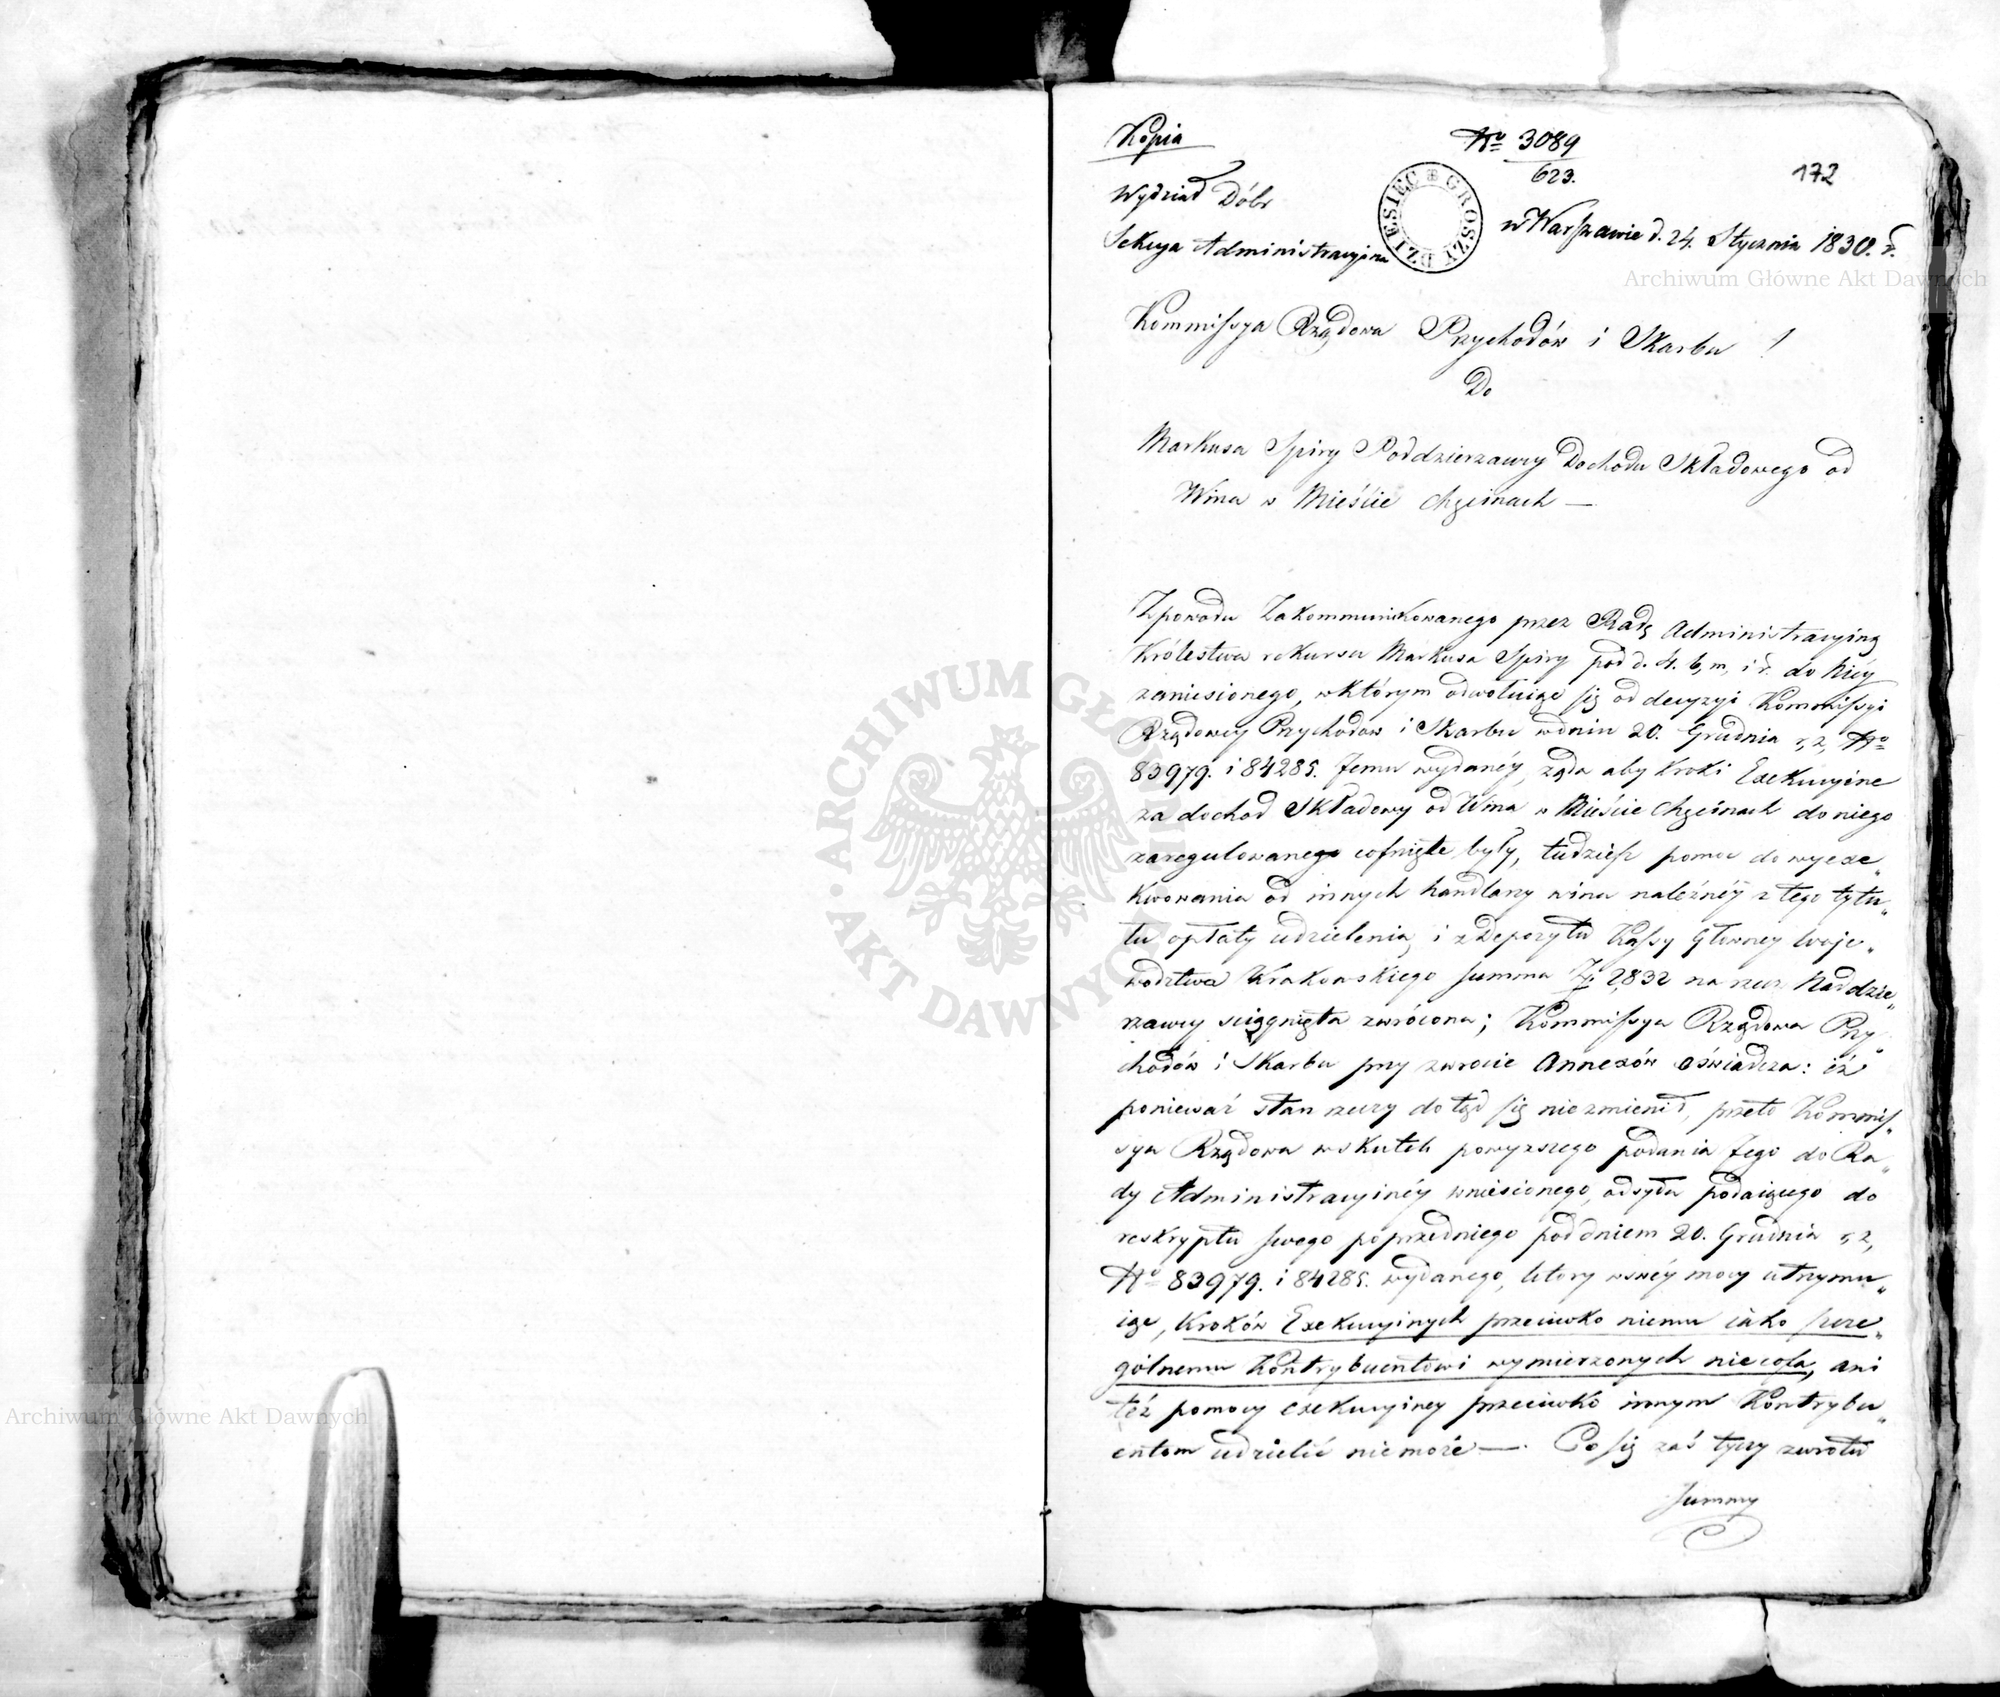 Kopia
No 3089
623.
172
Wydział Dóbr
Sekcya Administracyina
DZIESIĘC GROSZY
w Warszawie d. 24. Stycznia 1830. r.
Kommissya Rządowa Przychodów i Skarbu !
Do
Markusa Spiry Poddzierzawcy Dochodu Składowego od
Wina w Mieście Chęcinach —
Z powodu Zakommunikowanego przez Radę Administracyiną
Królestwa rekursu Markusa Spiry pod d. 4. b, m, i r. do Niéy
zaniesionego, w którym odwołuiąc się od decyzyi Kommissyi
Rządowey Przychodów i Skarbu w dniu 20. Grudnia r, z, No
83979. i 84285. Jemu wydanéy, żąda aby kroki Exekucyine
za dochod Składowy od Wina w Mieście Chęcinach do niego
zaregulowanego cofnięte były, tudzież pomoc do wyexe„
kwowania od innych handlarzy wina należnéy z tego tytu„
łu opłaty udzieloną i z Depozytu Kassy Głowney Woje„
wodztwa Krakowskiego summa Zł 2,832 na rzecz Naddzie„
rzawcy sciągnięta zwrócona; Kommissya Rządowa Przy„
chodów i Skarbu przy zwrocie Annexów oświadcza: iż
ponieważ stan rzeczy dotąd się niezmienił, przeto Kommis„
sya Rządowa w skutek powyzszego podania Jego do Ra„
dy Administracyinéy wniesionego, odsyła podaiącego do
reskryptu swego poprzedniego pod dniem 20. Grudnia r, z,
No 83979. i 84285. wydanego, ktory w swéy mocy utrzymu„
iąc, Kroków Exekucyinych przeciwko niemu iako szcze„
gólnemu Kontrybuentowi wymierzonych niecofa, ani
też pomocy exekucyiney przeciwko innym Kontrybu„
entom udzielić niemoże —. Co się zaś tyczy zwrotu
summy
Archiwum Główne Akt Dawnych
Archiwum Główne Akt Dawnych
ARCHIWUM GŁÓWNE AKT DAWNYCH